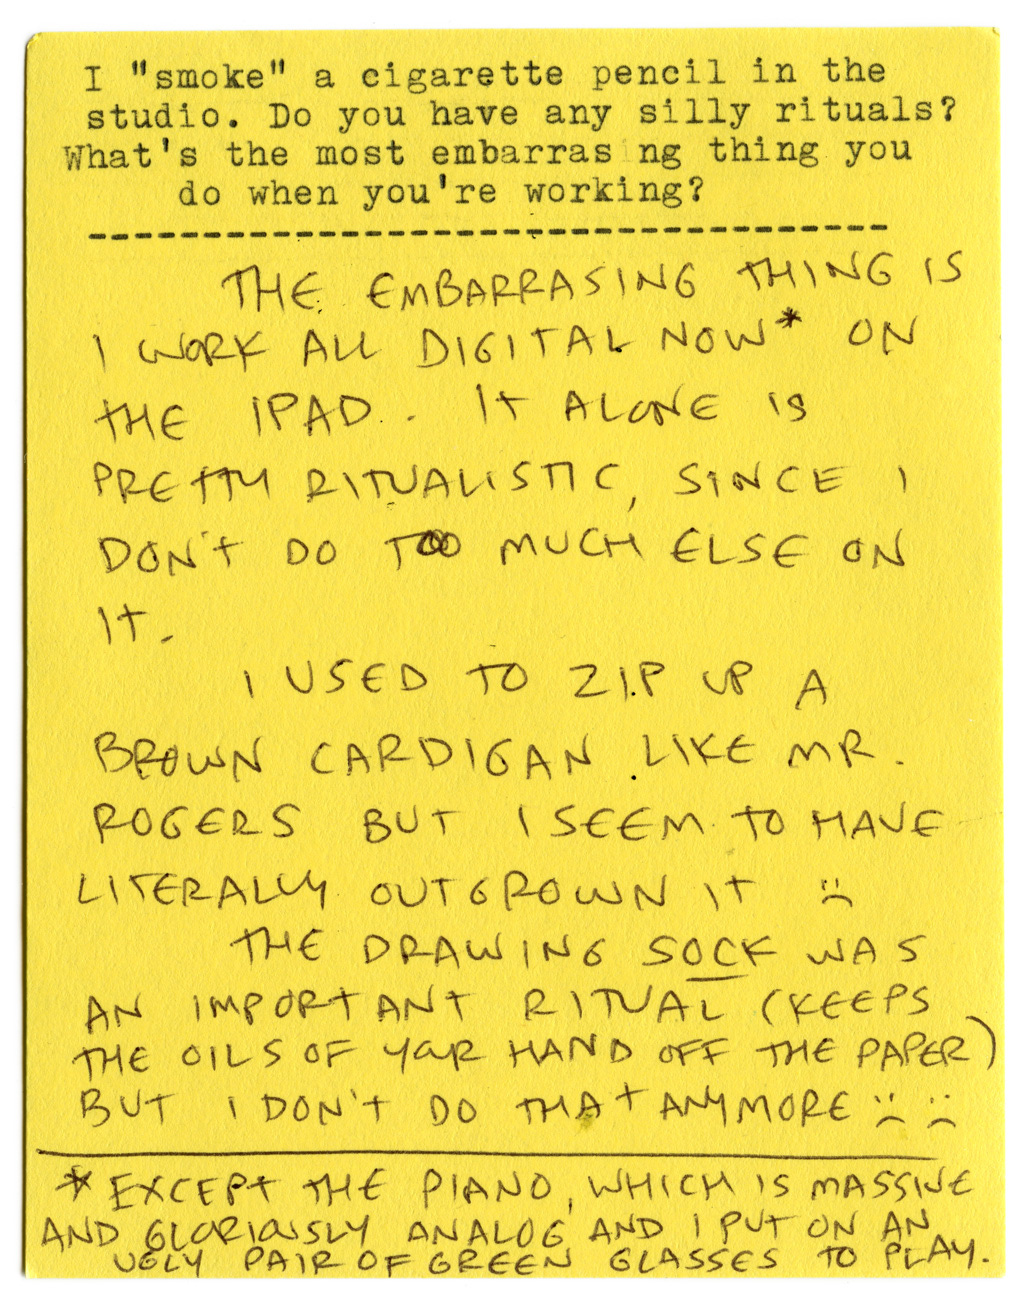 I "smoke" a cigarette pencil in the
studio. Do you have any silly rituals?
What's the most embarras ng thing you
do when you're working?
-----------------------------------
THE EMBARRASING THING IS
I WORK ALL DIGITAL NOW* ON
THE IPAD. IT ALONE IS
PRETTY RITUALISTIC, SINCE I
DON'T DO TOO MUCH ELSE ON
IT.
I USED TO ZIP UP A
BROWN CARDIGAN LIKE MR.
ROGERS BUT I SEEM TO HAVE
LITERALLY OUTGROWN IT :(
THE DRAWING SOCK WAS
AN IMPORTANT RITUAL (KEEPS
THE OILS OF YOUR HAND OFF THE PAPER)
BUT I DON'T DO THAT ANYMORE :( :(
* EXCEPT THE PIANO, WHICH IS MASSIVE
AND GLORIOUSLY ANALOG AND I PUT ON AN
UGLY PAIR OF GREEN GLASSES TO PLAY.